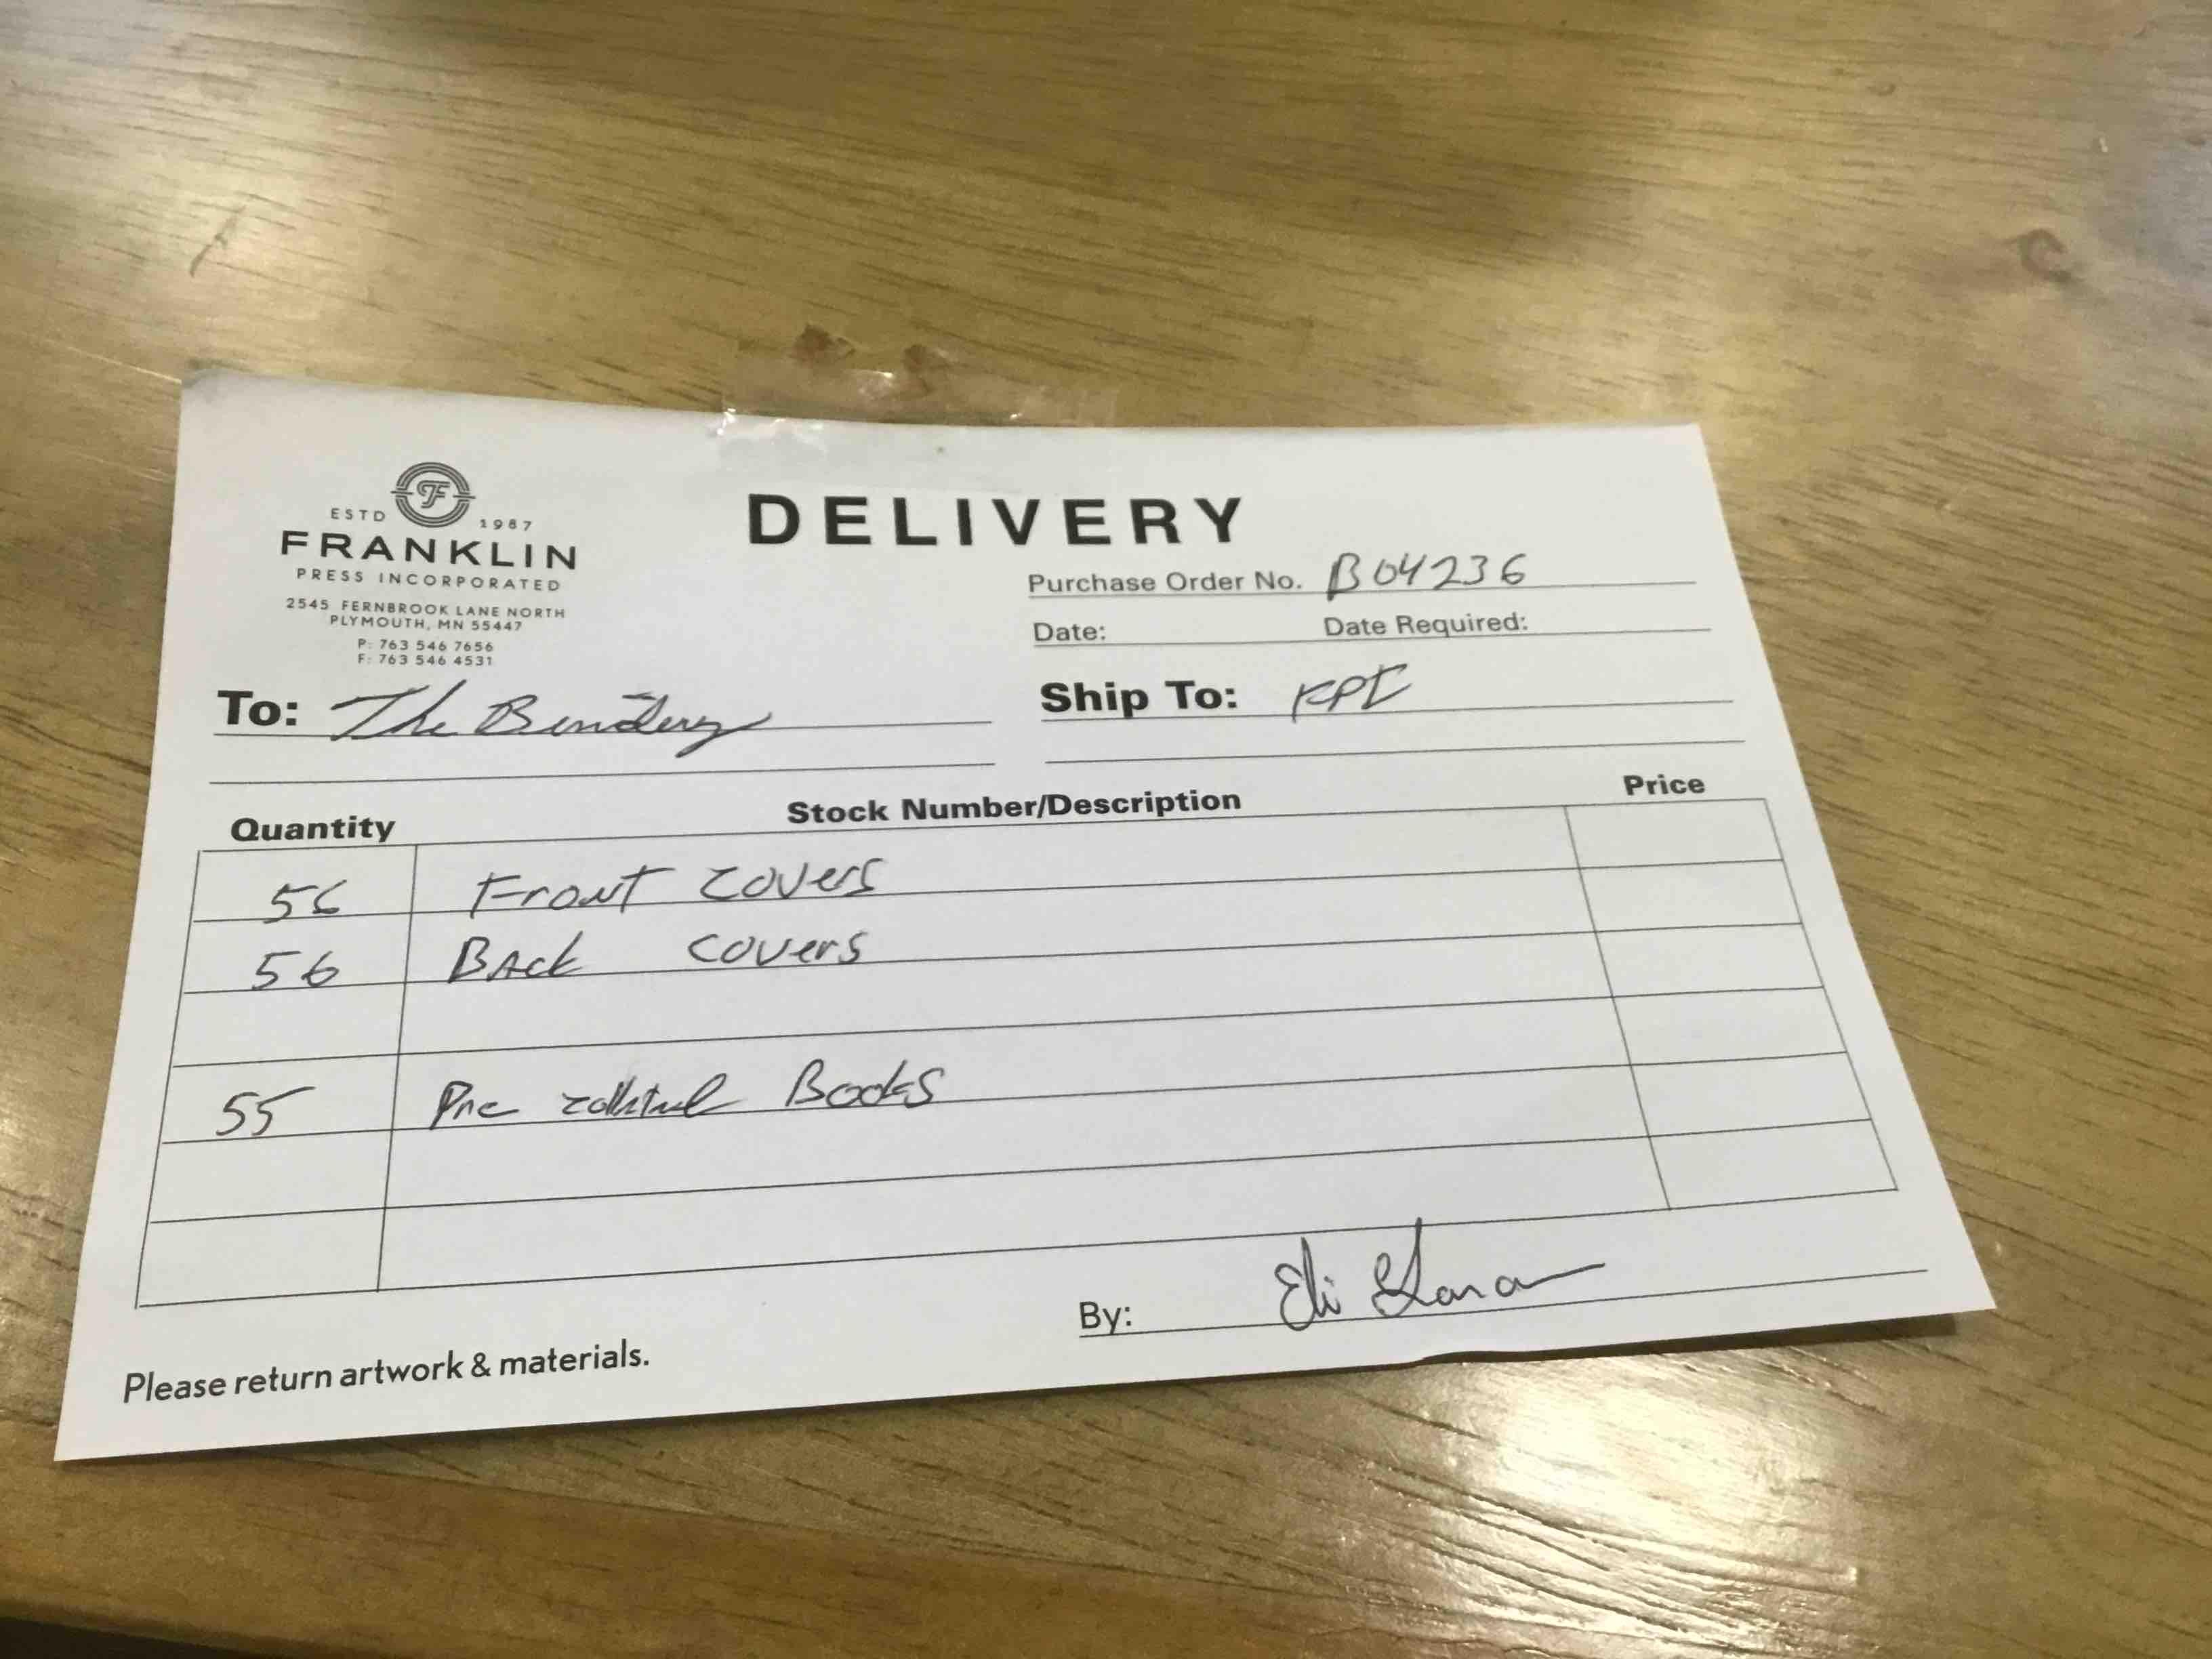 ESTD 1987
FRANKLIN
PRESS INCORPORATED
2545 FERNBROOK LANE NORTH
PLYMOUTH, MN 55447
P: 763 546 7656
F: 763 546 4531
DELIVERY
Purchase Order No. B04236
Date: Date Required:
To: The Bindery
Ship To: FPI
Quantity Stock Number/Description Price
56 Front covers
56 Back covers
55 Pre collated Books
By: Eli
Please return artwork & materials.